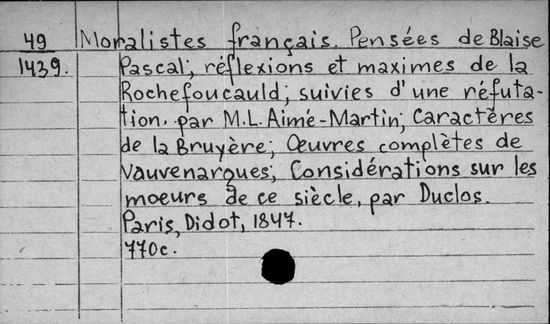 49 Moralistes français. Pensées de Blaise
1439. Pascal; réflexions et maximes de la
Rochefoucauld; suivies d'une réfuta-
tion. par M.L. Aimé-Martin; Caractères
de la Bruyère; Œuvres complètes de
Vauvenargues; Considérations sur les
moeurs de ce siècle, par Duclos.
Paris, Didot, 1847.
770c.